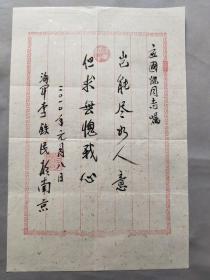 立国纪同志嘱
岂能尽如人意
但求无愧我心
二〇一〇年元月八日
海军李铁民于南京